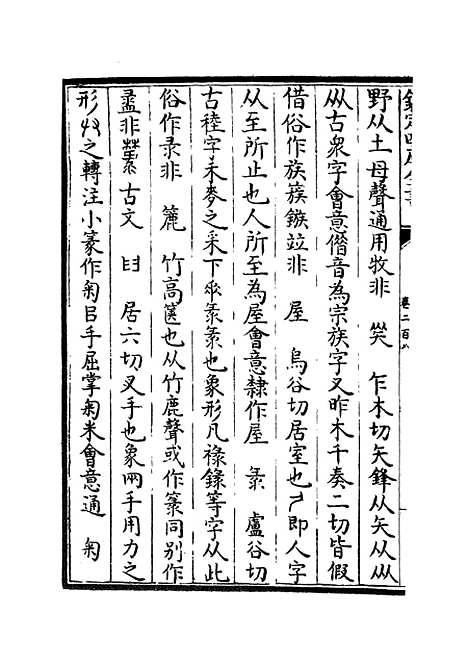 欽定四庫全書
卷二百八
野从土母聲通用牧非　㺇　乍木切矢鋒从矢从㸚
从古衆字會意僭音為宗族字又昨木千奏二切皆假
借俗作族蔟鏃竝非　屋　烏谷切居室也𠂊即人字
从至所止也人所至為屋會意隸作屋　彔　盧谷切
古稑字禾麥之采下垂彔彔也象形凡祿錄等字从此
俗作录非　簏　竹高篋也从竹鹿聲或作箓同別作
盝非　古文　𦥑　居六切叉手也象兩手用力之
形𠬞之轉注小篆作匊㠯手屈掌匊米會意通　匊